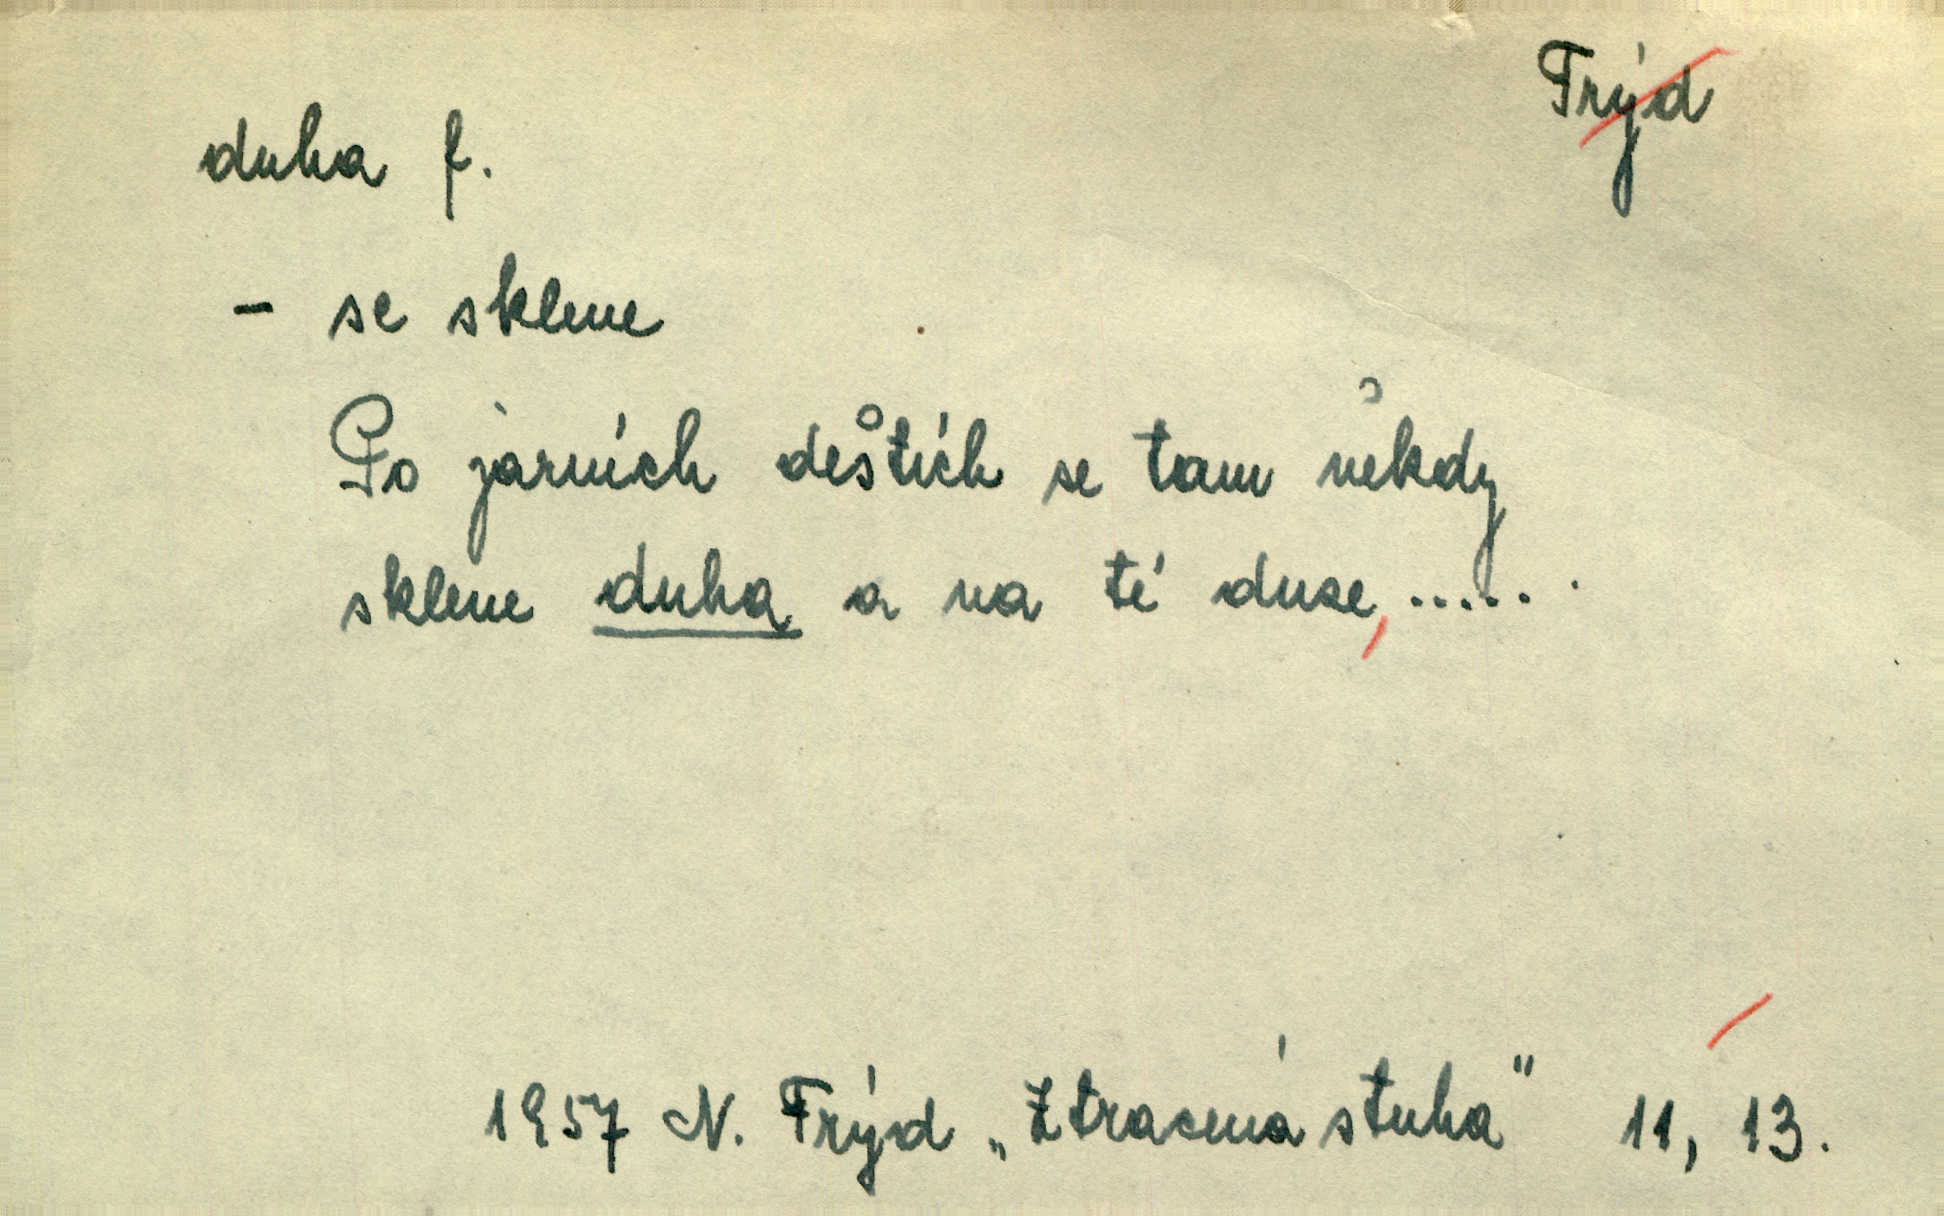 Frýd
duha f.
- se sklene
Po jarních deštích se tam někdy
sklene duha a na té duze, ......
1957 N. Frýd „Ztracená stuha" 11, 13.